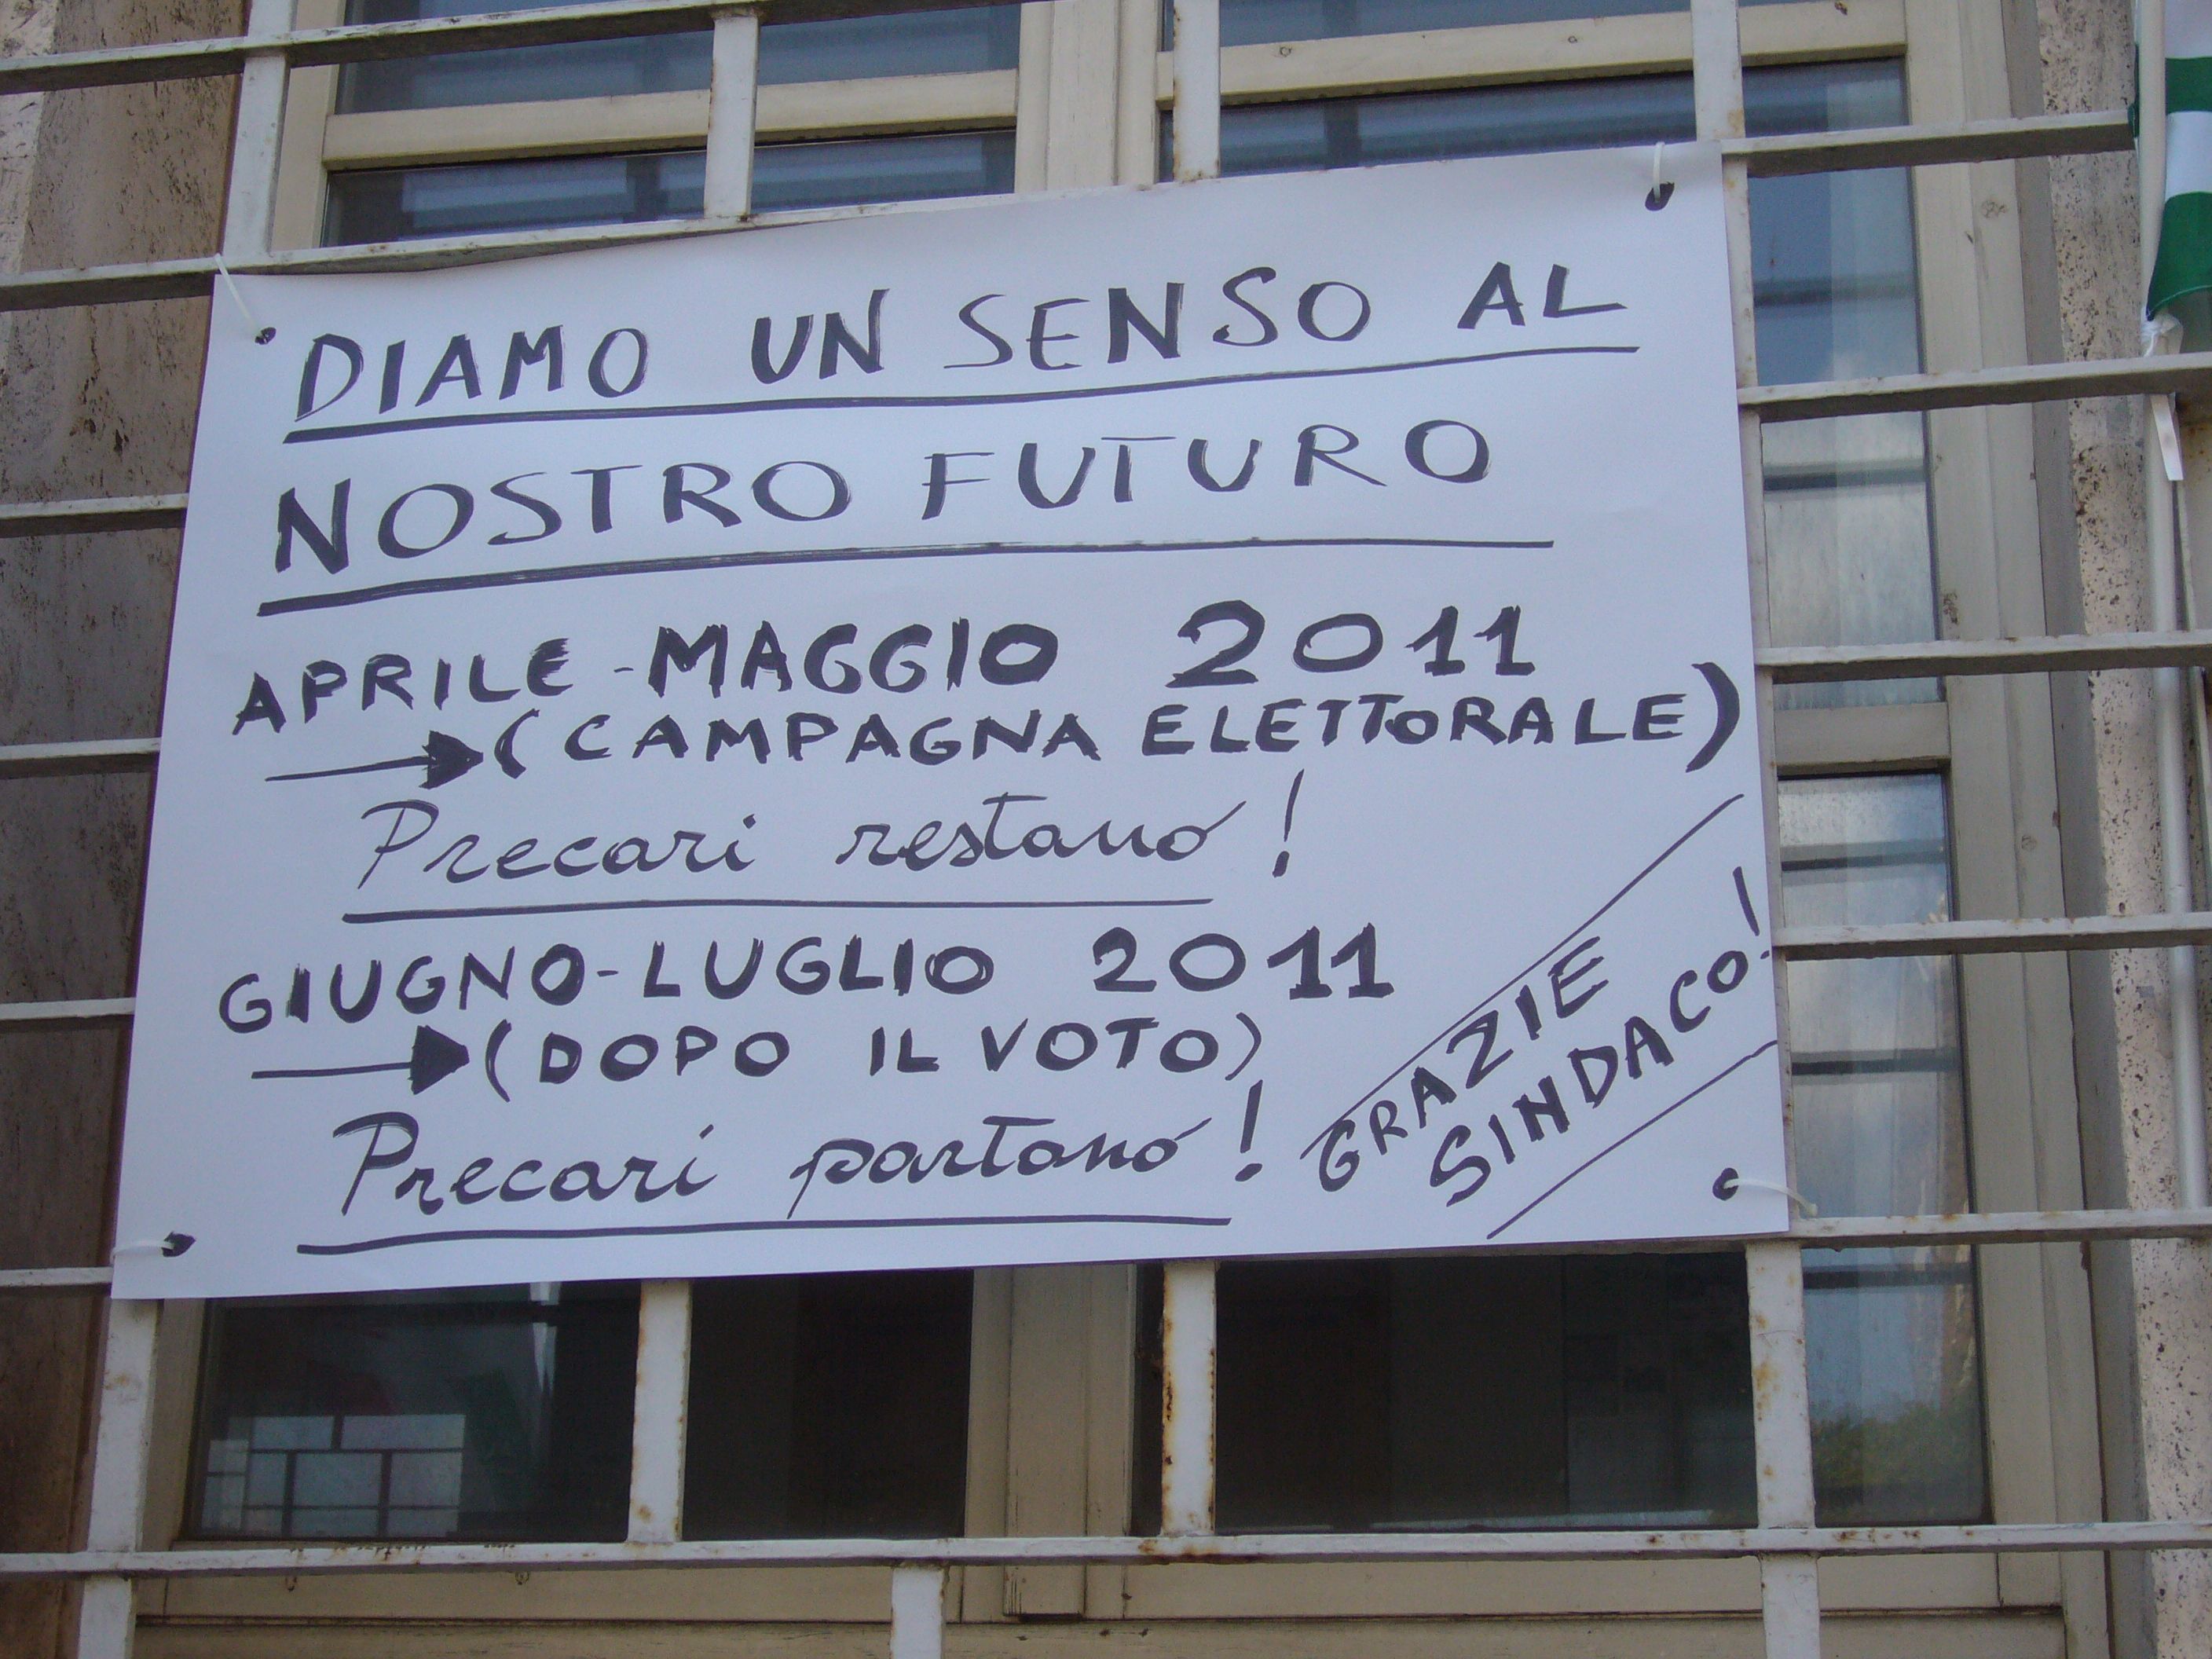 DIAMO UN SENSO AL
NOSTRO FUTURO
APRILE - MAGGIO 2011
(CAMPAGNA ELETTORALE)
Precari restano!
GIUGNO - LUGLIO 2011
(DOPO IL VOTO)
Precari partono!
GRAZIE
SINDACO!